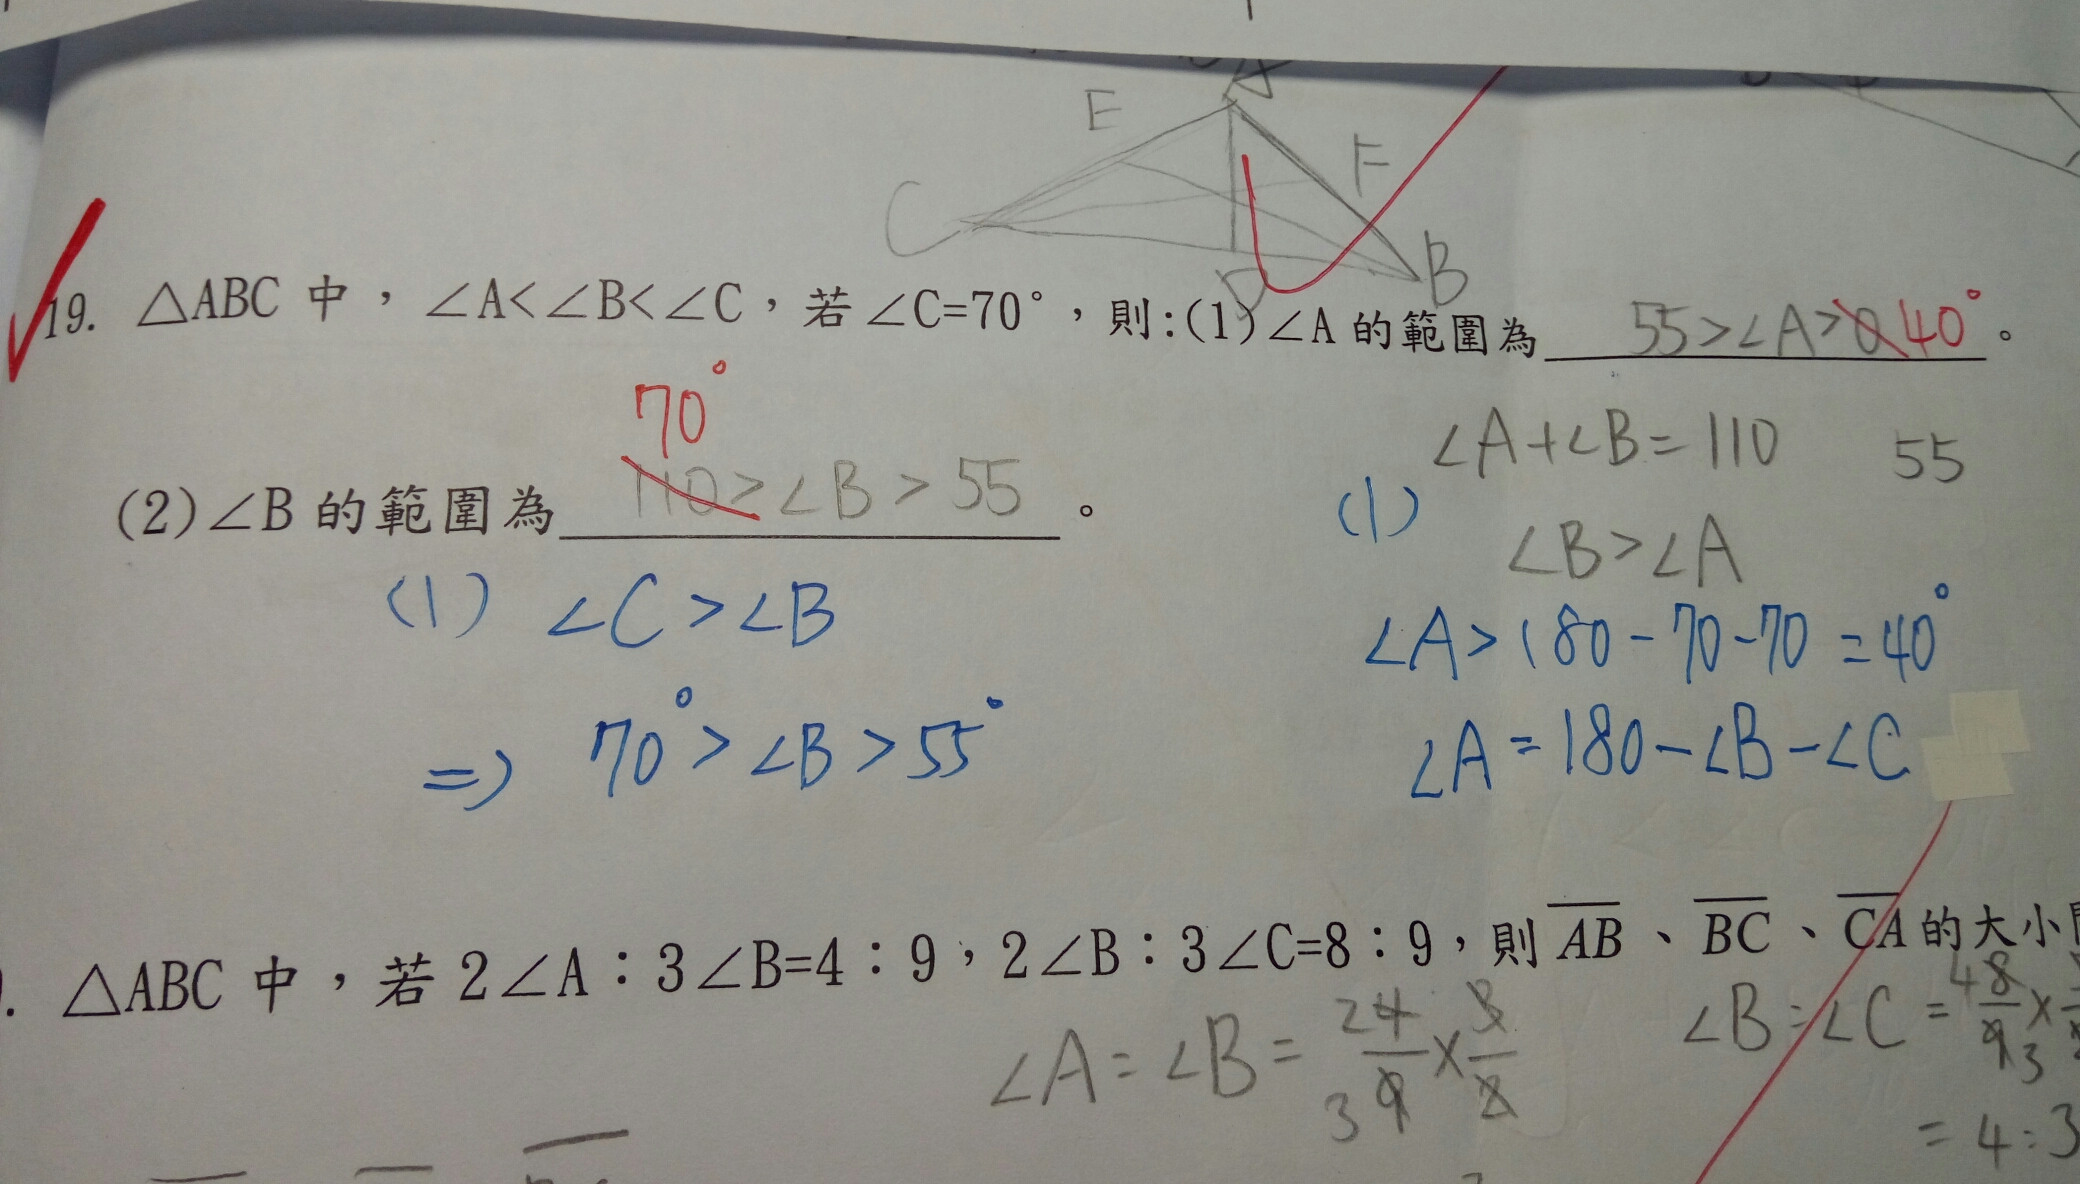 E
F
C
D
B
19. △ABC 中，∠A<∠B<∠C，若∠C=70°，則:(1)∠A 的範圍為 55>∠A>0 40°。
70°
(2)∠B 的範圍為 110>∠B>55。
∠A+∠B=110 55
(1) ∠B>∠A
(1) ∠C>∠B
∠A>180-70-70=40°
=> 70°>∠B>55°
∠A=180-∠B-∠C
. △ABC 中，若 2∠A：3∠B=4：9，2∠B：3∠C=8：9，則 AB、BC、CA 的大小
∠A:∠B= 24/9 3 × 3/2
∠B:∠C= 48/9 3 ×
=4:3